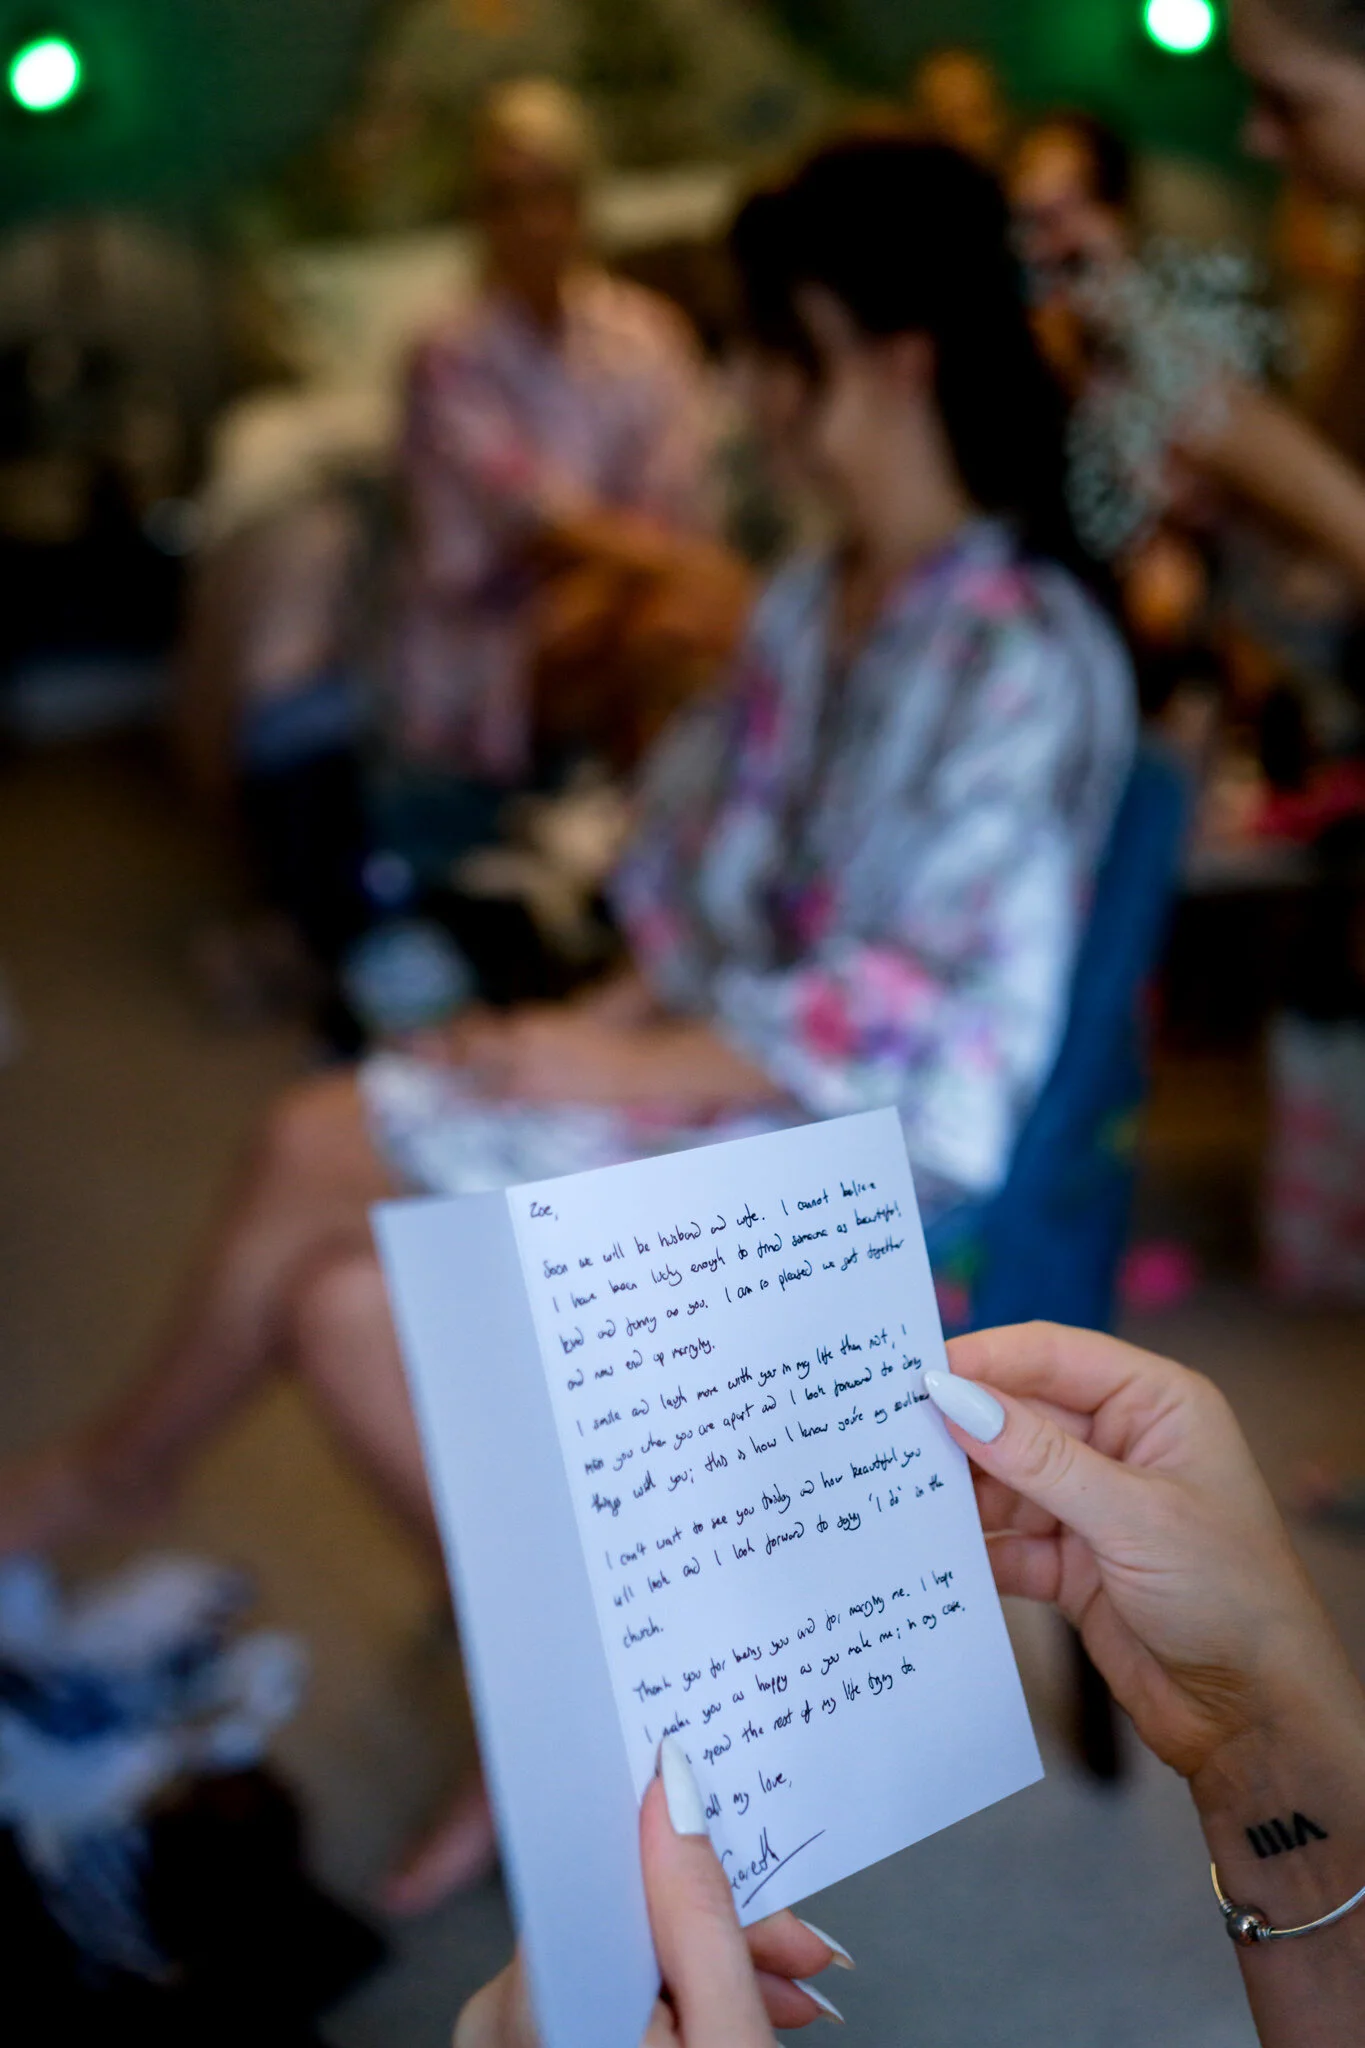 Zoe,
Soon we will be husband and wife. I cannot believe
I have been lucky enough to find someone as beautiful,
kind and funny as you. I am so pleased we got together
and now end up marrying.
I smile and laugh more with you in my life than not, I
miss you when you are apart and I look forward to doing
things with you; this is how I know you're my
I can't wait to see you today and how beautiful you
will look and I look forward to saying 'I do' in the
church.
Thank you for being you and for marrying me. I hope
I make you as happy as you make me; in any case,
spend the rest of my life trying to.
all my love,
Gareth
VIII